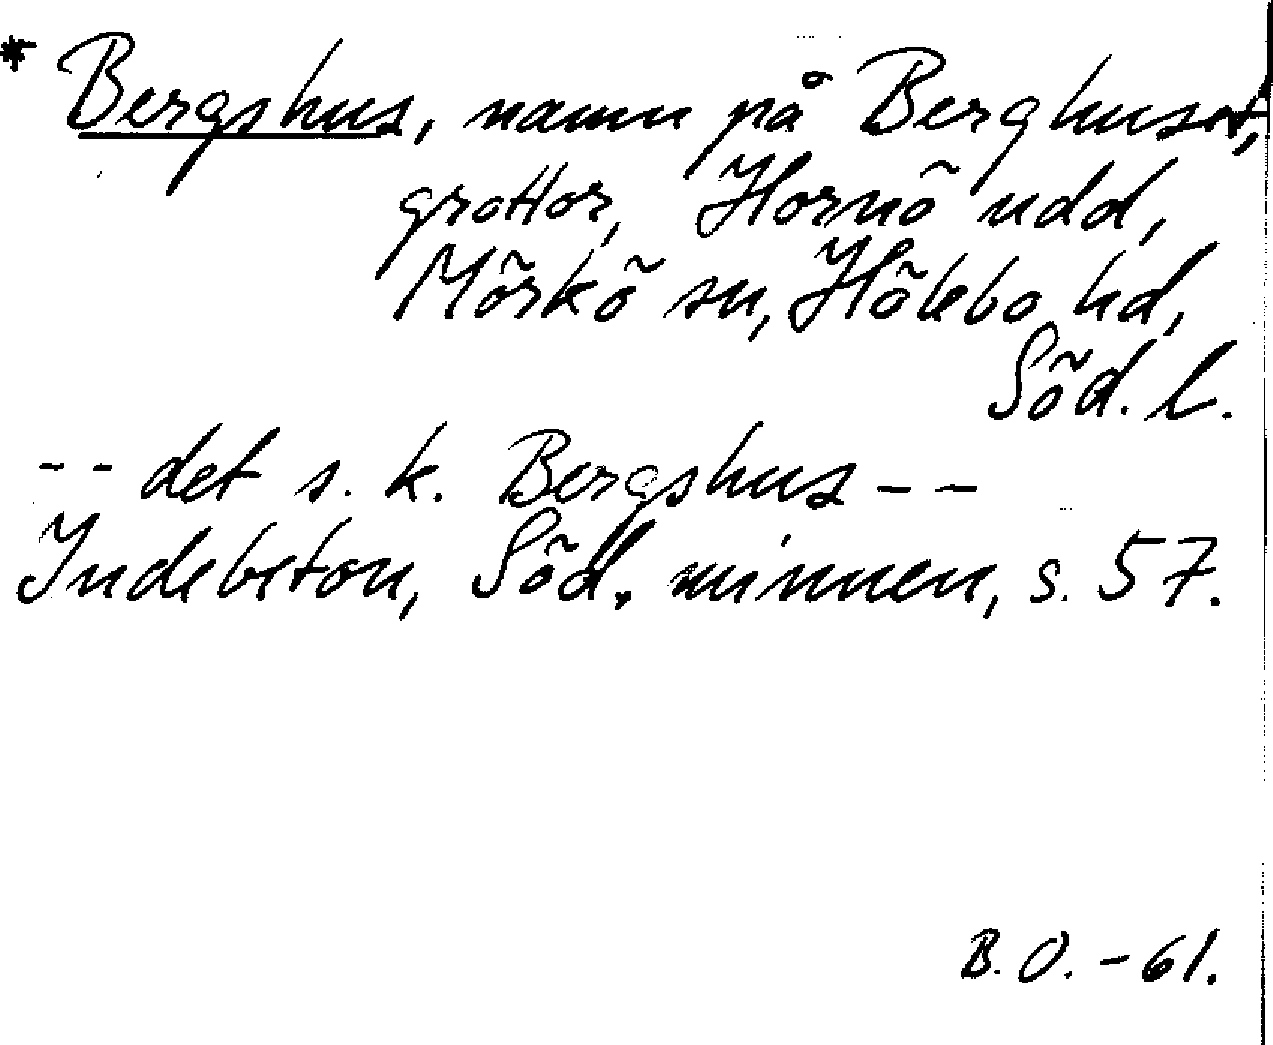 * Bergshus, namn på Berghuset,
grottor, Hornö udd,
Mörkö sn, Hölebo hd,
Söd. l.
-- det s. k. Bergshus --
Indebetou, Söd. minnen, s. 57.
B. O. - 61.